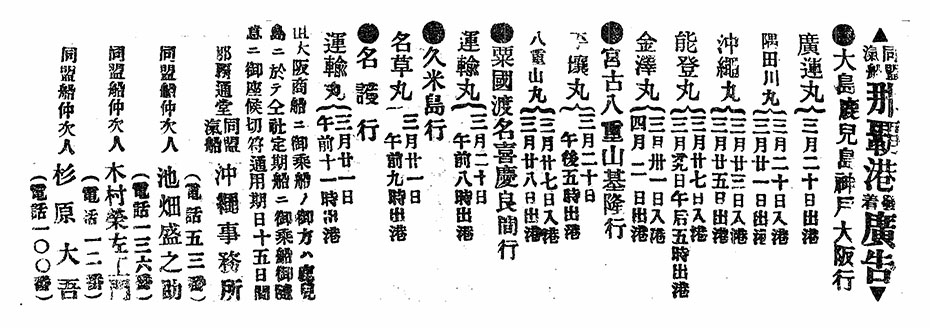 ▲同盟汽船那覇港發着廣告▼
●大島鹿兒島神戸大阪行
廣運丸
三月二十日出港
隅田川丸
三月二十日入港
三月廿一日出港
沖繩丸
三月廿三日入港
三月廿五日出港
能登丸
三月廿七日入港
三月 日午后五時出港
金澤丸
三月卅一日入港
四月一日出港
●宮古八重山基隆行
平壤丸
三月二十日
午後五時出港
八重山丸
三月廿七日入港
三月廿八日出港
●粟國渡名喜慶良間行
運輸丸
三月二十日
午前八時出港
●久米島行
名草丸
三月廿一日
午前九時出港
●名護行
運輸丸
三月廿一日
午前十一時出港
大阪商船ニ御乘船ノ御方ハ鹿兒
島ニ於テ仝社定期船ニ御乘船御隨
意ニ御座候切符通用期日十五日間
那覇通堂
同盟汽船 沖繩事務所
(電話五三番)
同盟船仲次人 池畑盛之助
(電話一三六番)
同盟船仲次人 木村榮左工門
(電話一二番)
同盟船仲次人 杉原大吾
(電話一〇〇番)